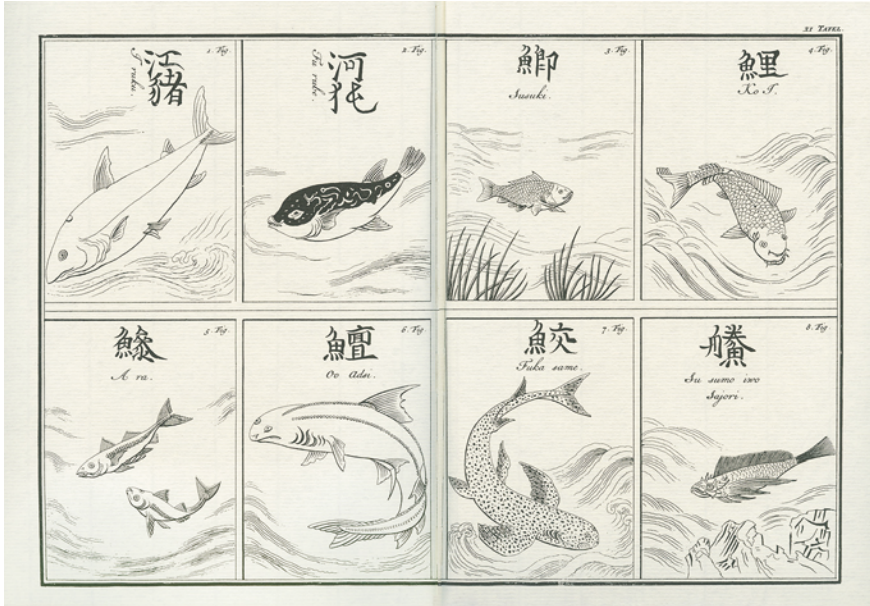 XI TAFEL.
1. Fig.
江豬
I ruku.
2. Fig.
河㹠
Fu rube.
3. Fig.
鯽
Susuki.
4. Fig.
鯉
Ko I.
5. Fig
鯵
A ra.
6. Fig
鱣
Oo Adsi.
7. Fig.
鮫
Fuka same.
8. Fig
Su sumo iwo
Sajori.